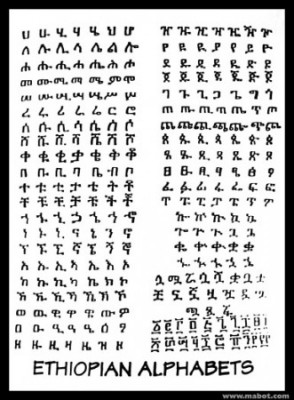 ሀ ሁ ሂ ሃ ሄ ህ ሆ
ለ ሉ ሊ ላ ሌ ል ሎ
ሐ ሑ ሒ ሓ ሔ ሕ ሖ
መ ሙ ሚ ማ ሜ ም ሞ
ሠ ሡ ሢ ሣ ሤ ሥ ሦ
ረ ሩ ሪ ራ ሬ ር ሮ
ሰ ሱ ሲ ሳ ሴ ስ ሶ
ሸ ሹ ሺ ሻ ሼ ሽ ሾ
ቀ ቁ ቂ ቃ ቄ ቅ ቆ
በ ቡ ቢ ባ ቤ ብ ቦ
ተ ቱ ቲ ታ ቴ ት ቶ
ቸ ቹ ቺ ቻ ቼ ች ቾ
ኀ ኁ ኂ ኃ ኄ ኅ ኆ
ነ ኑ ኒ ና ኔ ን ኖ
ኘ ኙ ኚ ኛ ኜ ኝ ኞ
አ ኡ ኢ ኣ ኤ እ ኦ
ከ ኩ ኪ ካ ኬ ክ ኮ
ኸ ኹ ኺ ኻ ኼ ኽ ኾ
ወ ዉ ዊ ዋ ዌ ው ዎ
ዐ ዑ ዒ ዓ ዔ ዕ ዖ
ዘ ዙ ዚ ዛ ዜ ዝ ዞ
ዠ ዡ ዢ ዣ ዤ ዥ ዦ
የ ዩ ዪ ያ ዬ ይ ዮ
ደ ዱ ዲ ዳ ዴ ድ ዶ
ጀ ጁ ጂ ጃ ጄ ጅ ጆ
ገ ጉ ጊ ጋ ጌ ግ ጎ
ጠ ጡ ጢ ጣ ጤ ጥ ጦ
ጨ ጩ ጪ ጫ ጬ ጭ ጮ
ጰ ጱ ጲ ጳ ጴ ጵ ጶ
ጸ ጹ ጺ ጻ ጼ ጽ ጾ
ፀ ፁ ፂ ፃ ፄ ፅ ፆ
ፈ ፉ ፊ ፋ ፌ ፍ ፎ
ፐ ፑ ፒ ፓ ፔ ፕ ፖ
ETHIOPIAN ALPHABETS
www.mabot.com